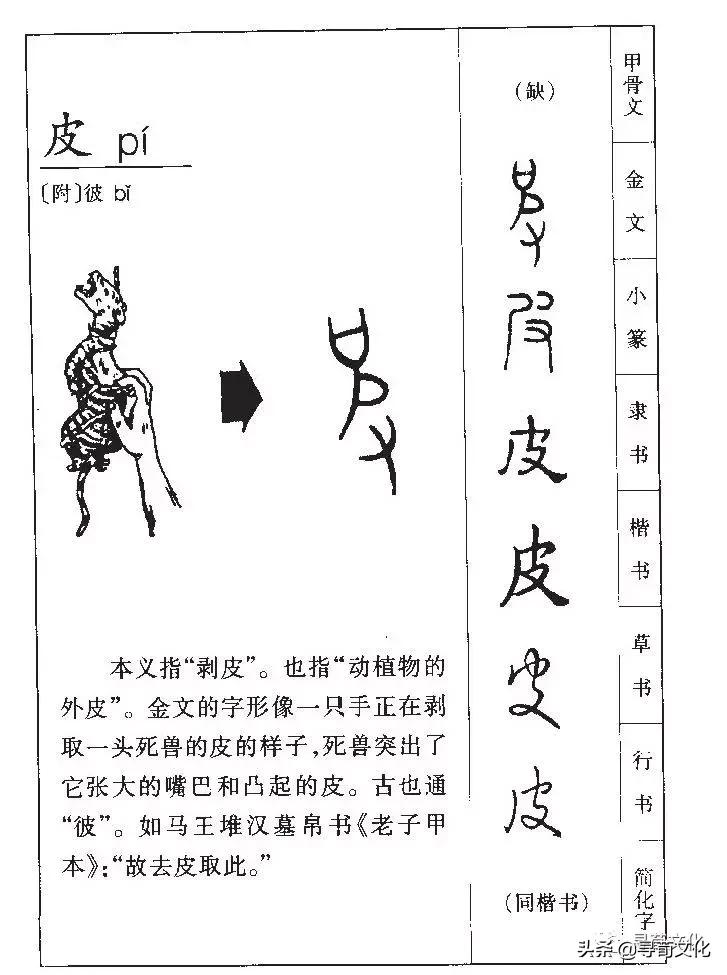 皮 pí
〔附〕彼 bǐ
本义指“剥皮”。也指“动植物的
外皮”。金文的字形像一只手正在剥
取一头死兽的皮的样子,死兽突出了
它张大的嘴巴和凸起的皮。古也通
“彼”。如马王堆汉墓帛书《老子甲
本》:“故去皮取此。”
甲骨文
(缺)
金文
小篆
隶书
皮
楷书
皮
草书
行书
皮
简化字
(同楷书)
头条@寻荀文化